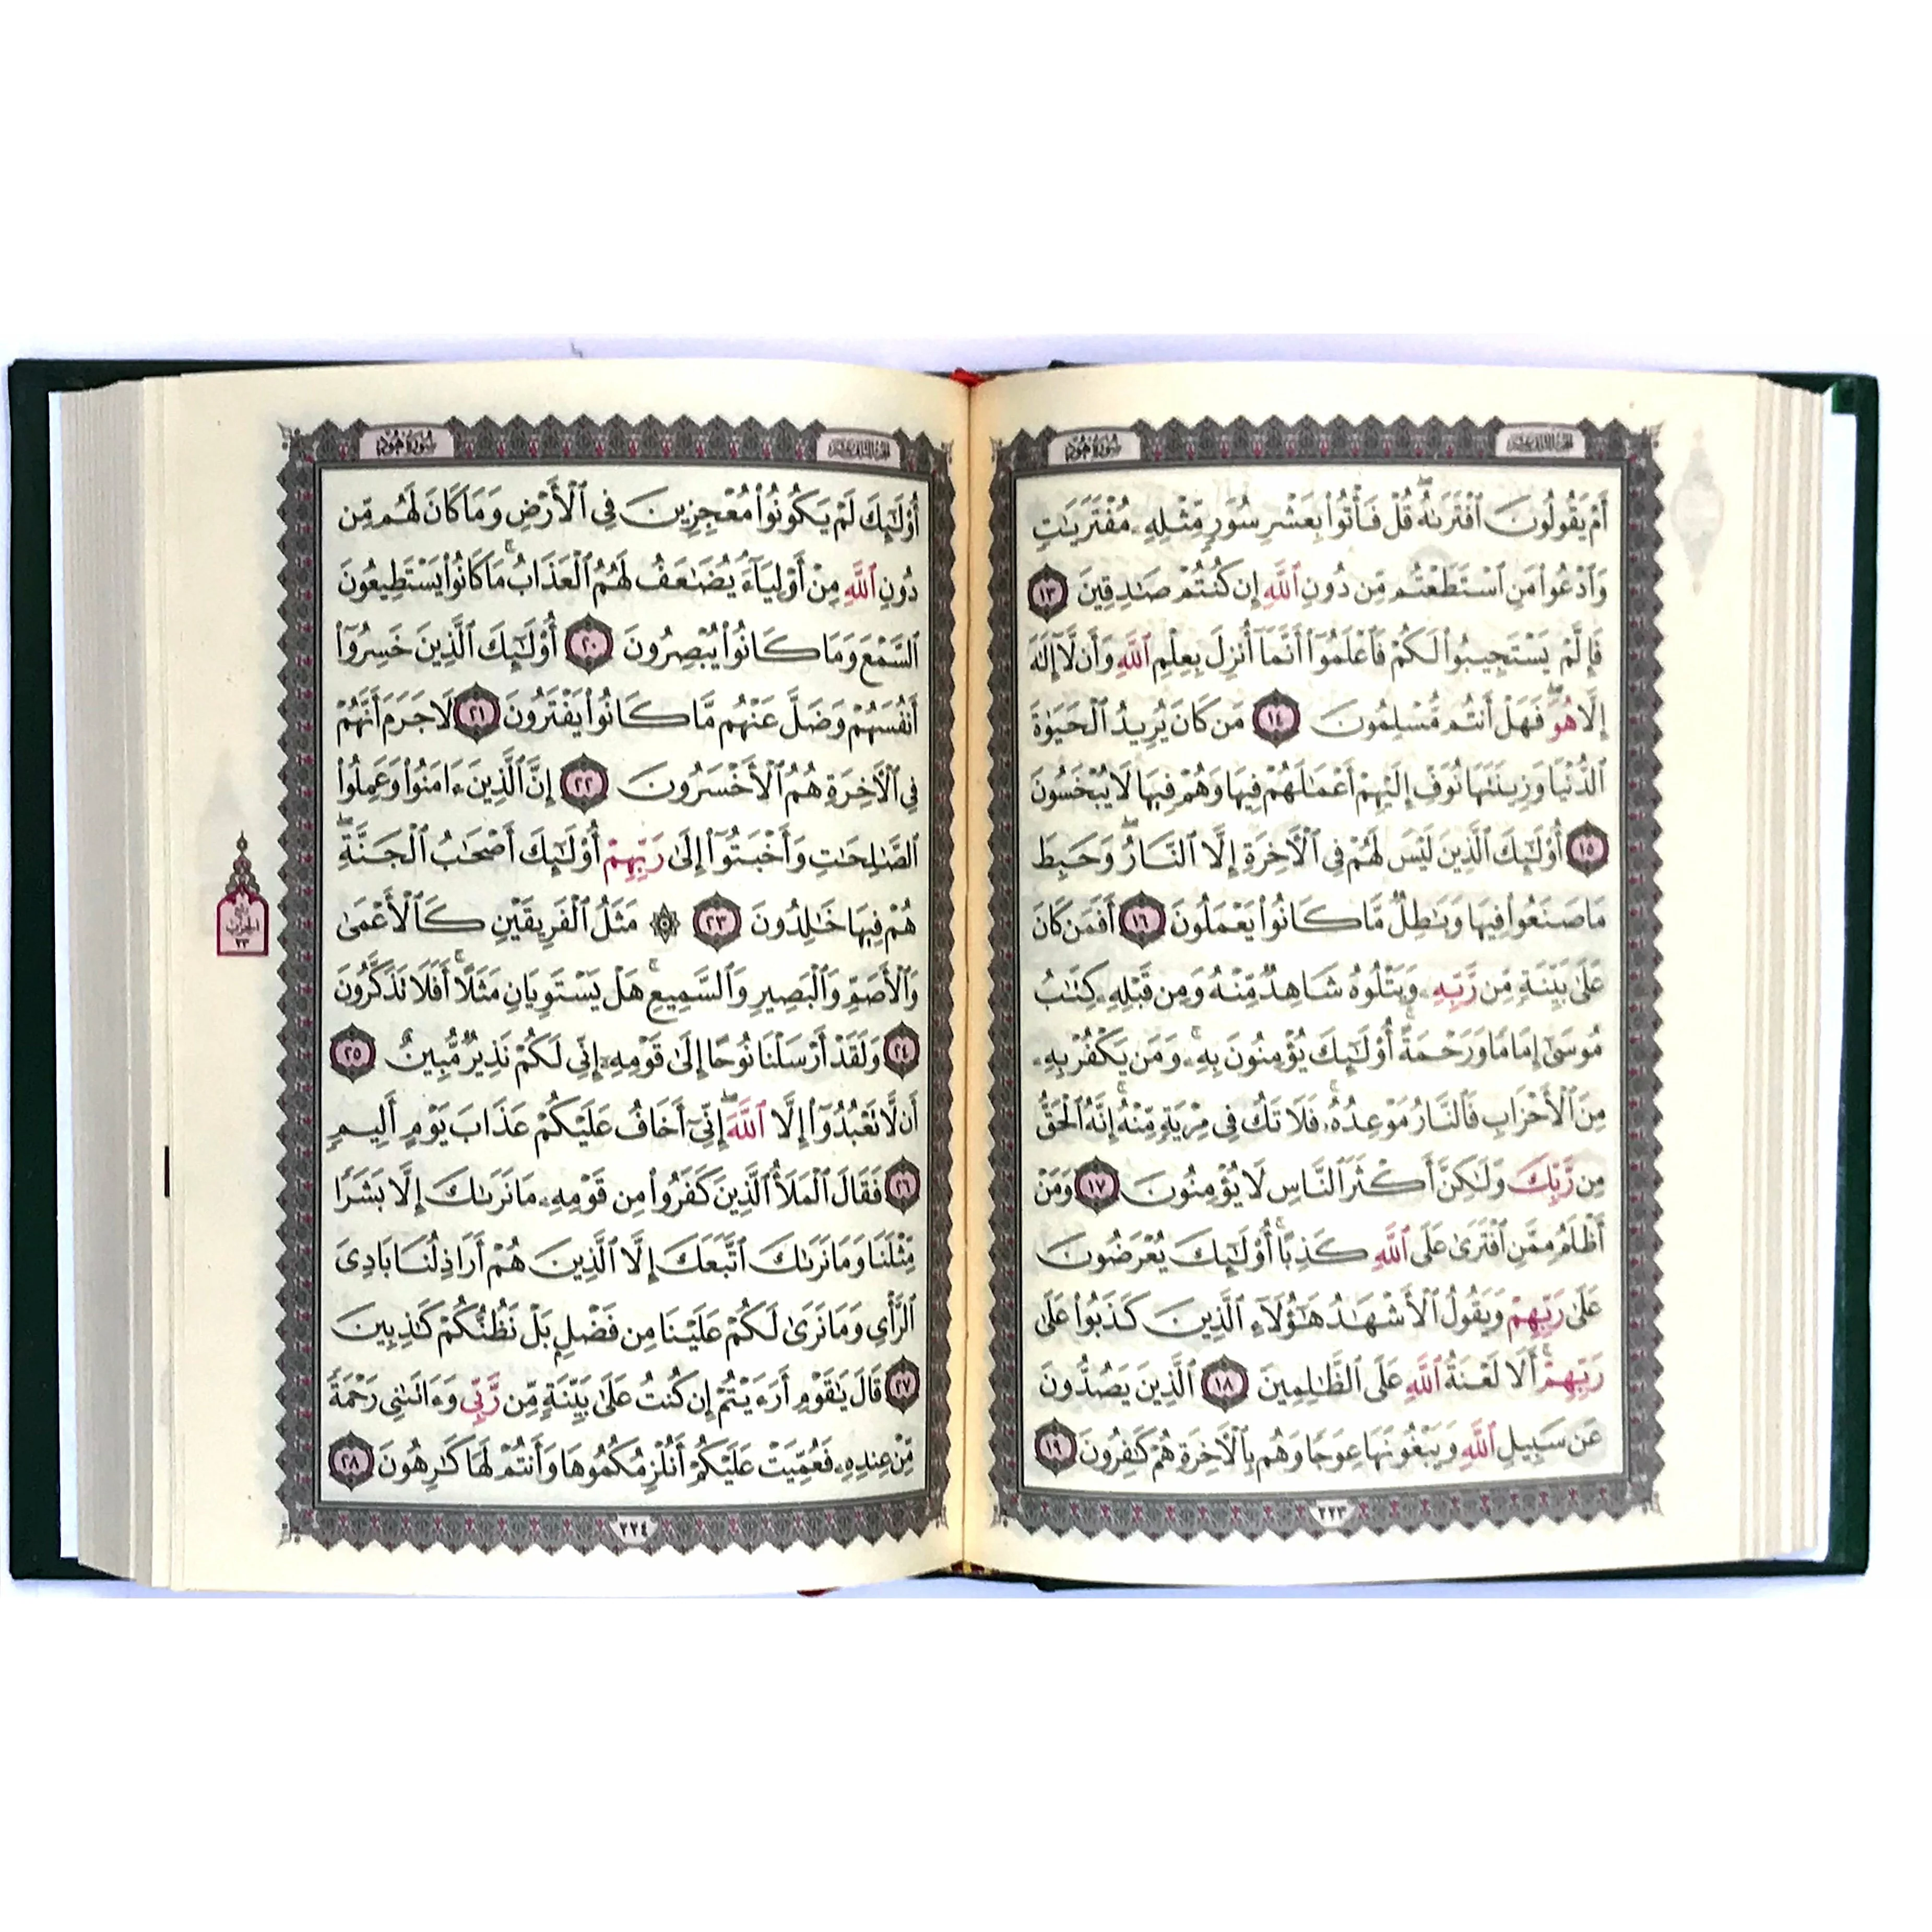 الجزء الثاني عشر
سورة هود
أَمْ يَقُولُونَ ٱفْتَرَىٰهُ ۖ قُلْ فَأْتُوا۟ بِعَشْرِ سُوَرٍ مِّثْلِهِۦ مُفْتَرَيَـٰتٍ
وَٱدْعُوا۟ مَنِ ٱسْتَطَعْتُم مِّن دُونِ ٱللَّهِ إِن كُنتُمْ صَـٰدِقِينَ ١٣
فَإِلَّمْ يَسْتَجِيبُوا۟ لَكُمْ فَٱعْلَمُوٓا۟ أَنَّمَآ أُنزِلَ بِعِلْمِ ٱللَّهِ وَأَن لَّآ إِلَـٰهَ
إِلَّا هُوَ ۖ فَهَلْ أَنتُم مُّسْلِمُونَ ١٤ مَن كَانَ يُرِيدُ ٱلْحَيَوٰةَ
ٱلدُّنْيَا وَزِينَتَهَا نُوَفِّ إِلَيْهِمْ أَعْمَـٰلَهُمْ فِيهَا وَهُمْ فِيهَا لَا يُبْخَسُونَ
١٥ أُو۟لَـٰٓئِكَ ٱلَّذِينَ لَيْسَ لَهُمْ فِى ٱلْـَٔاخِرَةِ إِلَّا ٱلنَّارُ ۖ وَحَبِطَ
مَا صَنَعُوا۟ فِيهَا وَبَـٰطِلٌ مَّا كَانُوا۟ يَعْمَلُونَ ١٦ أَفَمَن كَانَ
عَلَىٰ بَيِّنَةٍ مِّن رَّبِّهِۦ وَيَتْلُوهُ شَاهِدٌ مِّنْهُ وَمِن قَبْلِهِۦ كِتَـٰبُ
مُوسَىٰٓ إِمَامًا وَرَحْمَةً ۚ أُو۟لَـٰٓئِكَ يُؤْمِنُونَ بِهِۦ ۚ وَمَن يَكْفُرْ بِهِۦ
مِنَ ٱلْأَحْزَابِ فَٱلنَّارُ مَوْعِدُهُۥ ۚ فَلَا تَكُ فِى مِرْيَةٍ مِّنْهُ ۚ إِنَّهُ ٱلْحَقُّ
مِن رَّبِّكَ وَلَـٰكِنَّ أَكْثَرَ ٱلنَّاسِ لَا يُؤْمِنُونَ ١٧ وَمَنْ
أَظْلَمُ مِمَّنِ ٱفْتَرَىٰ عَلَى ٱللَّهِ كَذِبًا ۚ أُو۟لَـٰٓئِكَ يُعْرَضُونَ
عَلَىٰ رَبِّهِمْ وَيَقُولُ ٱلْأَشْهَـٰدُ هَـٰٓؤُلَآءِ ٱلَّذِينَ كَذَبُوا۟ عَلَىٰ
رَبِّهِمْ ۚ أَلَا لَعْنَةُ ٱللَّهِ عَلَى ٱلظَّـٰلِمِينَ ١٨ ٱلَّذِينَ يَصُدُّونَ
عَن سَبِيلِ ٱللَّهِ وَيَبْغُونَهَا عِوَجًا وَهُم بِٱلْـَٔاخِرَةِ هُمْ كَـٰفِرُونَ ١٩
٢٢٣
الجزء الثاني عشر
سورة هود
أُو۟لَـٰٓئِكَ لَمْ يَكُونُوا۟ مُعْجِزِينَ فِى ٱلْأَرْضِ وَمَا كَانَ لَهُم مِّن
دُونِ ٱللَّهِ مِنْ أَوْلِيَآءَ ۘ يُضَـٰعَفُ لَهُمُ ٱلْعَذَابُ ۚ مَا كَانُوا۟ يَسْتَطِيعُونَ
ٱلسَّمْعَ وَمَا كَانُوا۟ يُبْصِرُونَ ٢٠ أُو۟لَـٰٓئِكَ ٱلَّذِينَ خَسِرُوٓا۟
أَنفُسَهُمْ وَضَلَّ عَنْهُم مَّا كَانُوا۟ يَفْتَرُونَ ٢١ لَا جَرَمَ أَنَّهُمْ
فِى ٱلْـَٔاخِرَةِ هُمُ ٱلْأَخْسَرُونَ ٢٢ إِنَّ ٱلَّذِينَ ءَامَنُوا۟ وَعَمِلُوا۟
ٱلصَّـٰلِحَـٰتِ وَأَخْبَتُوٓا۟ إِلَىٰ رَبِّهِمْ أُو۟لَـٰٓئِكَ أَصْحَـٰبُ ٱلْجَنَّةِ ۖ
هُمْ فِيهَا خَـٰلِدُونَ ٢٣ ۞ مَثَلُ ٱلْفَرِيقَيْنِ كَٱلْأَعْمَىٰ
وَٱلْأَصَمِّ وَٱلْبَصِيرِ وَٱلسَّمِيعِ ۚ هَلْ يَسْتَوِيَانِ مَثَلًا ۚ أَفَلَا تَذَكَّرُونَ
٢٤ وَلَقَدْ أَرْسَلْنَا نُوحًا إِلَىٰ قَوْمِهِۦٓ إِنِّى لَكُمْ نَذِيرٌ مُّبِينٌ ٢٥
أَن لَّا تَعْبُدُوٓا۟ إِلَّا ٱللَّهَ ۖ إِنِّىٓ أَخَافُ عَلَيْكُمْ عَذَابَ يَوْمٍ أَلِيمٍ
٢٦ فَقَالَ ٱلْمَلَأُ ٱلَّذِينَ كَفَرُوا۟ مِن قَوْمِهِۦ مَا نَرَىٰكَ إِلَّا بَشَرًا
مِّثْلَنَا وَمَا نَرَىٰكَ ٱتَّبَعَكَ إِلَّا ٱلَّذِينَ هُمْ أَرَاذِلُنَا بَادِىَ
ٱلرَّأْىِ وَمَا نَرَىٰ لَكُمْ عَلَيْنَا مِن فَضْلٍۭ بَلْ نَظُنُّكُمْ كَـٰذِبِينَ
٢٧ قَالَ يَـٰقَوْمِ أَرَءَيْتُمْ إِن كُنتُ عَلَىٰ بَيِّنَةٍ مِّن رَّبِّى وَءَاتَىٰنِى رَحْمَةً
مِّنْ عِندِهِۦ فَعُمِّيَتْ عَلَيْكُمْ أَنُلْزِمُكُمُوهَا وَأَنتُمْ لَهَا كَـٰرِهُونَ ٢٨
٢٢٤
الحزب
٢٣